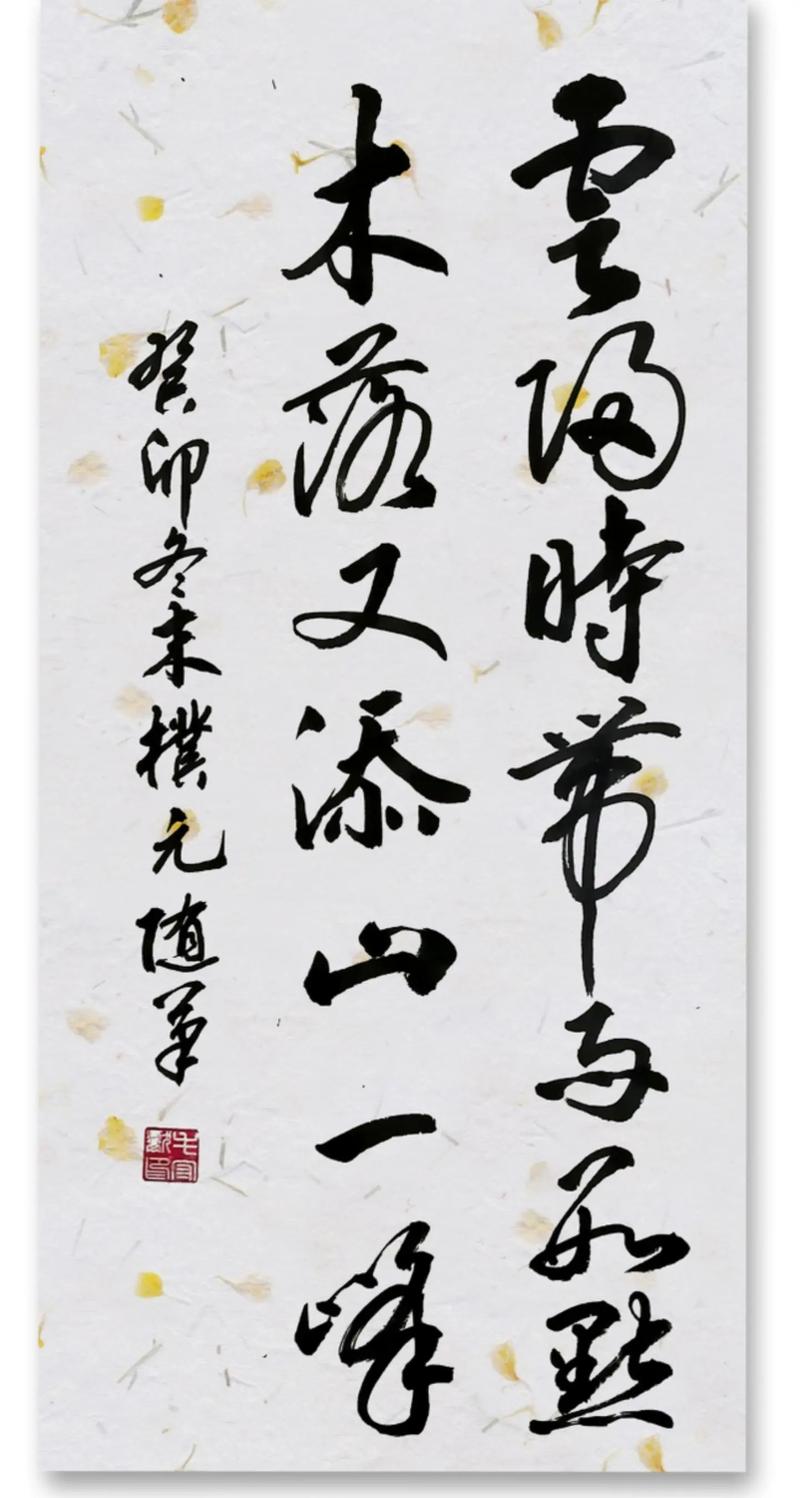 雲歸時帶雨數點
木落又添山一峰
癸卯冬末樸元随筆